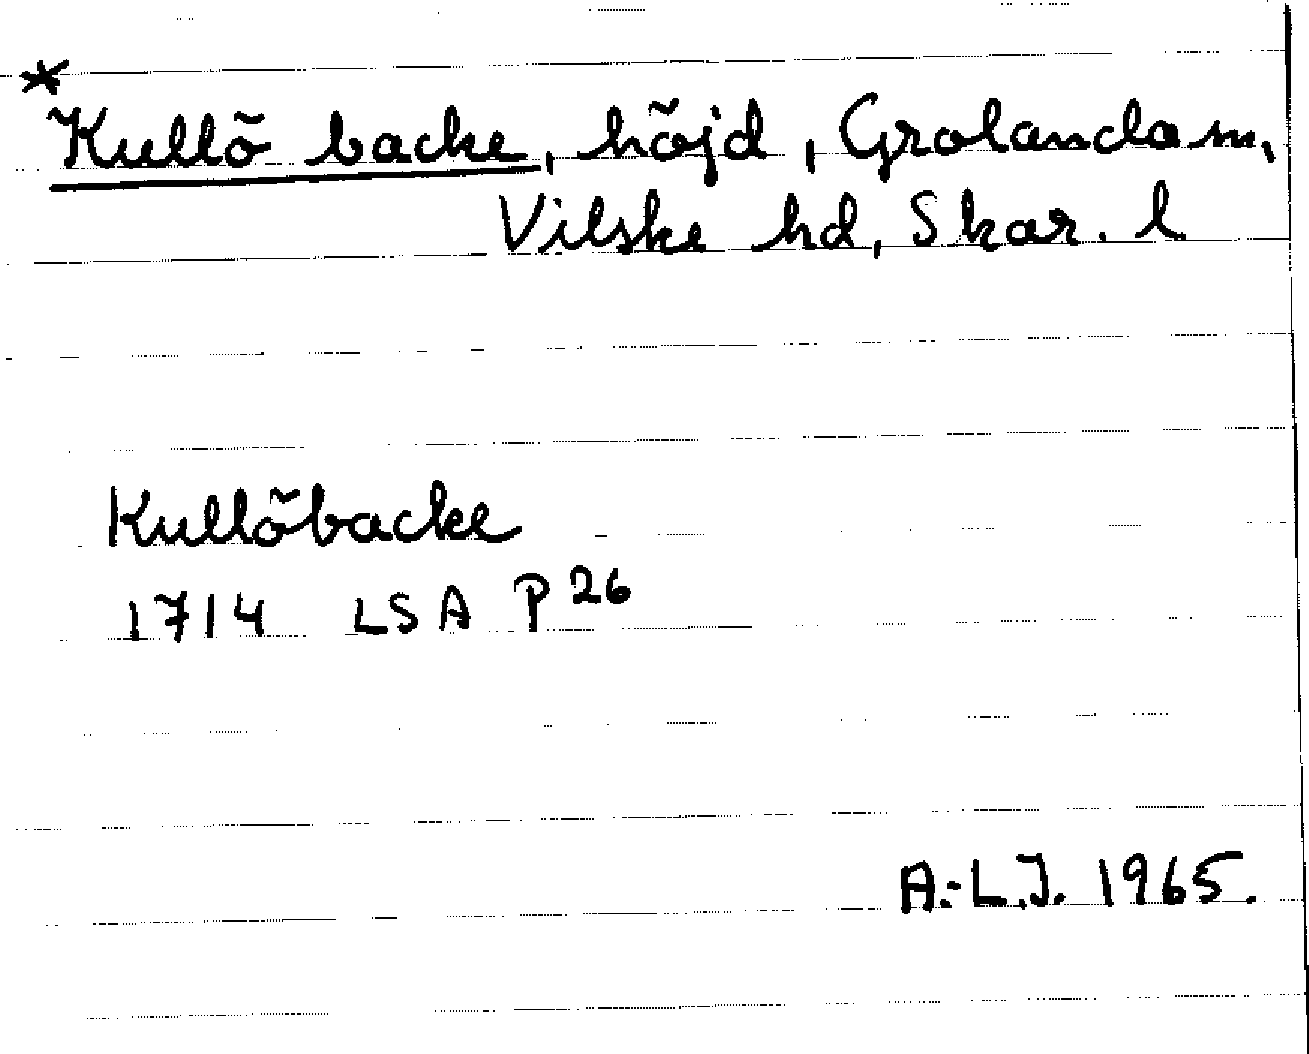 *
Kullö backe, höjd, Grolanda sn,
Vilske hd, Skar. l
Kullöbacke
1714 LSA P 26
A.-L.J. 1965.